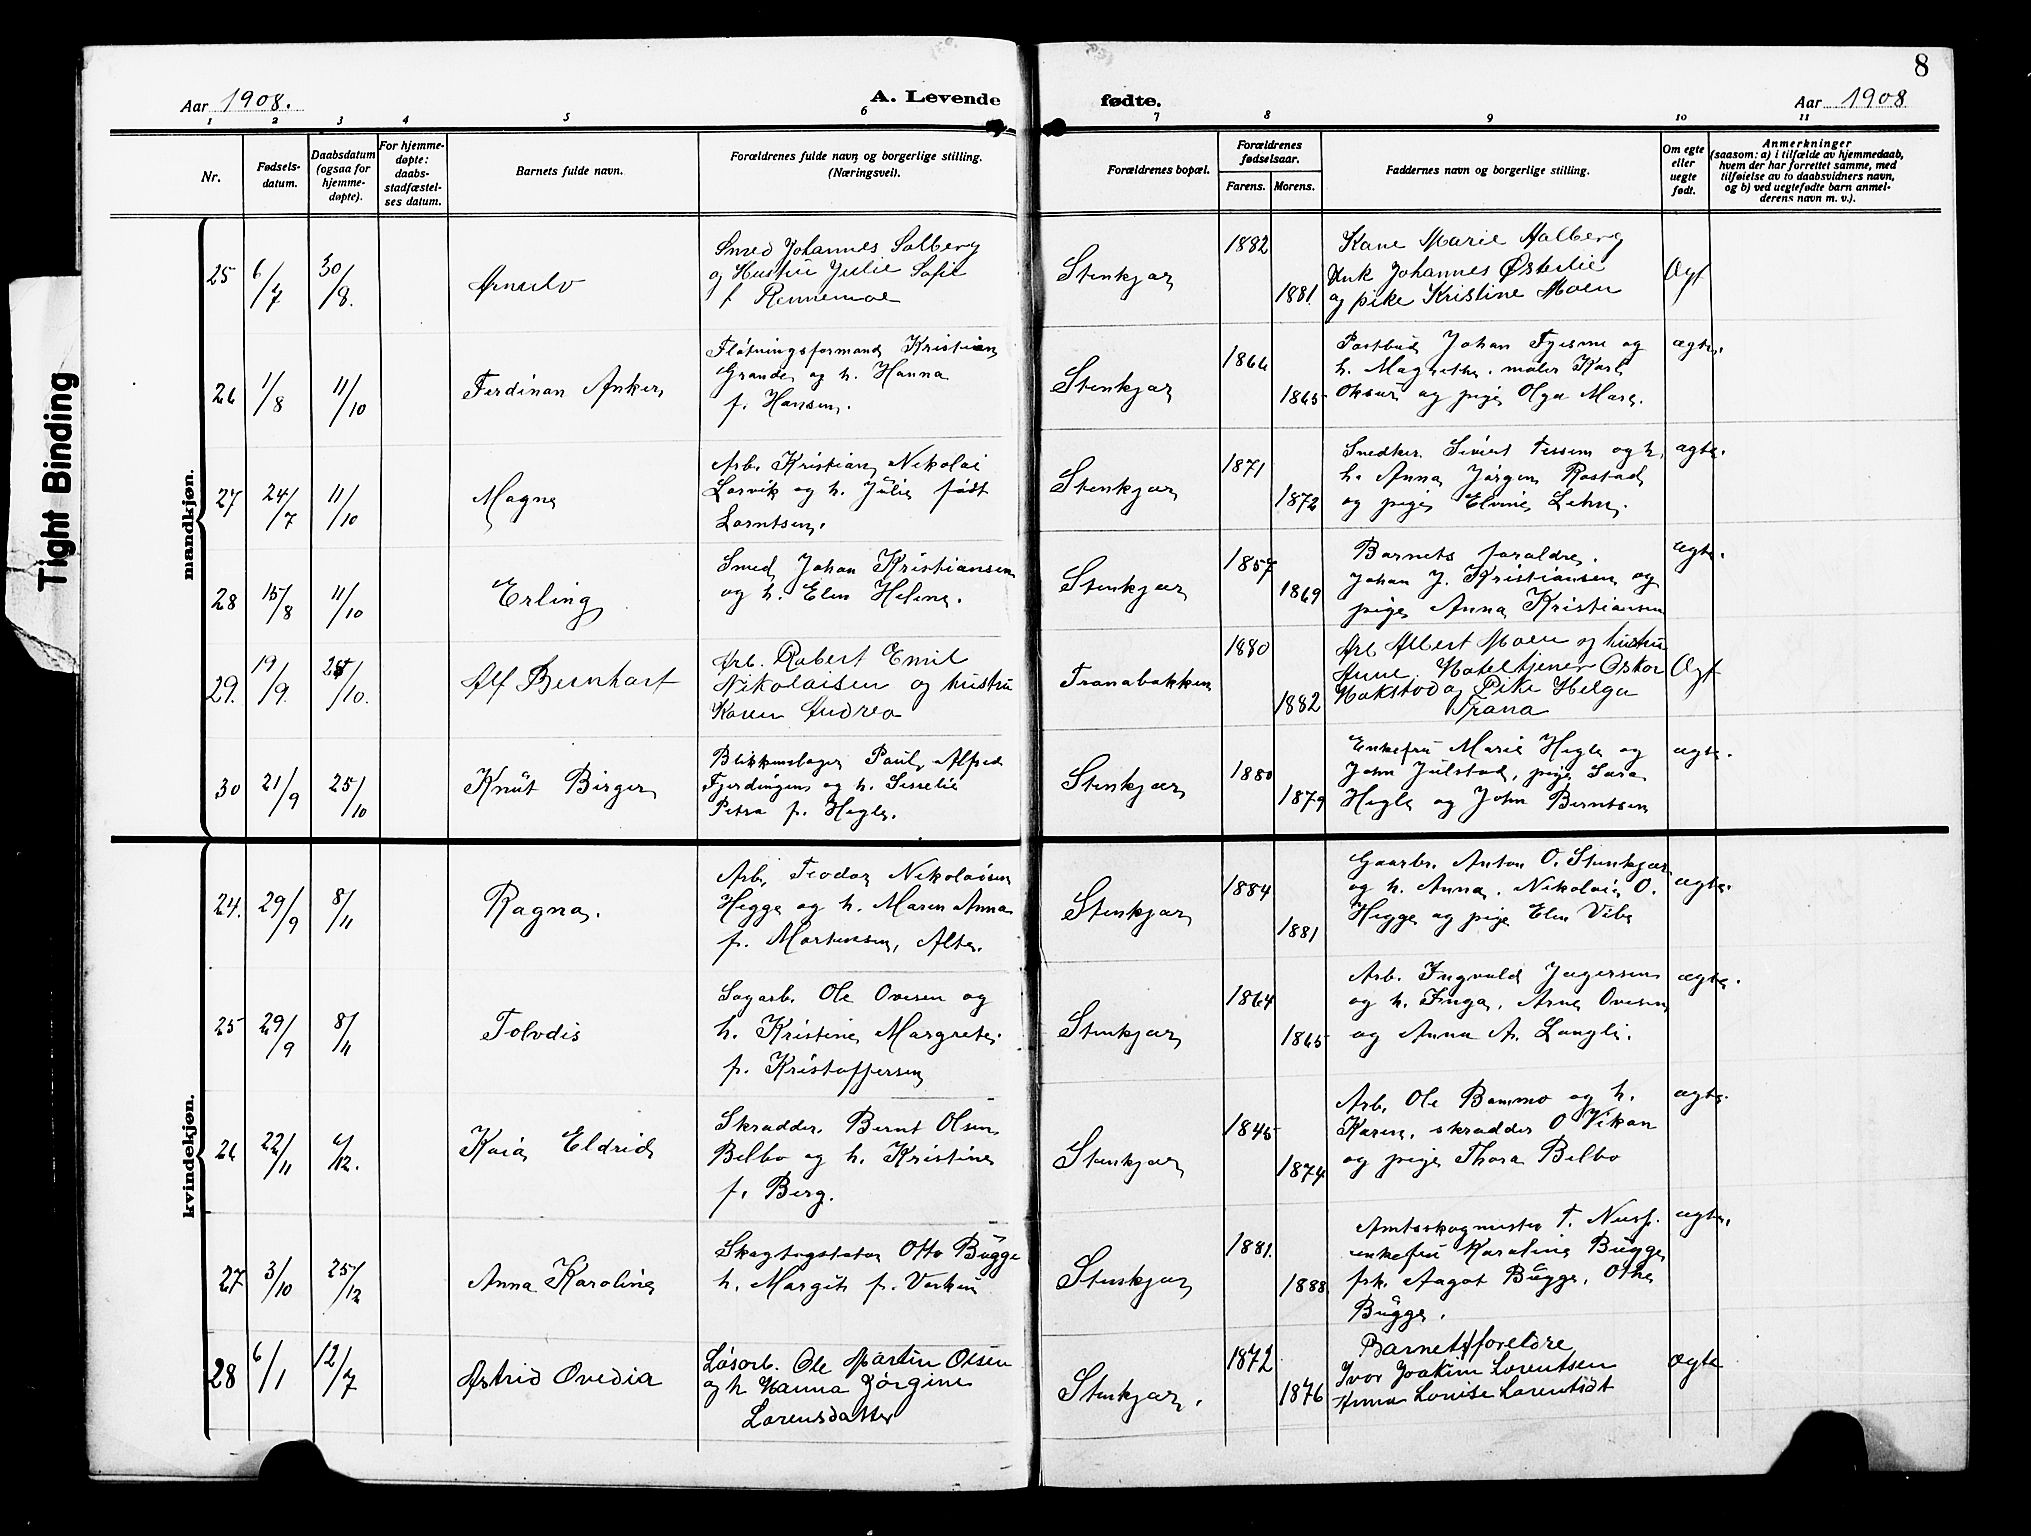 8
Aar 1908.
A. Levende
fødte.
Aar 1908
1 2 3 4 5 6 7 8 9 10 11
Nr.
Fødsels-
datum.
Daabsdatum
(ogsaa for
hjemme-
døpte).
For hjemme-
døpte:
daabs-
stadfæstel-
ses datum.
Barnets fulde navn.
Forældrenes fulde navn og borgerlige stilling.
(Næringsvei).
Forældrenes bopæl.
Forældrenes
fødselsaar.
Farens. Morens.
Faddernes navn og borgerlige stilling.
Om egte
eller
uegte
født.
Anmerkninger
(saasom: a) i tilfælde av hjemmedaab,
hvem der har forrettet samme, med
tilføielse av to daabsvidners navn,
og b) ved uegtefødte barn anmel-
derens navn m. v.).
Tight Binding
mandkjøn.
25 6/7 30/8. Arnulv
Smed Johannes Solberg
og Hustru Julie Sofie
f Rennemoe
Stenkjær 1882 1881.
Kane Marie Aalberg
Enk Johannes Østerlie
og pike Kristine Moen
Egt
26 1/8 11/10 Ferdinan Anker
Fløtningsformand Kristian
Grande og h. Hanna
f. Hansen.
Stenkjær 1866 1865
Postbud Johan Fjesme og
h. Magrethe. maler Karl
og pige Olga
ægte.
27 24/7 11/10 Magne
Arb. Kristian Nikolai
Lorvik og h. Julie født
Lorntsen.
Stenkjær 1871 1872
Snedker Sivert Tessem og h.
h. Anna Jørgen Rostad
og pige Elvine Lehn.
ægte.
28 15/8 11/10 Erling
Smed Johan Kristiansen
og h. Elen Heline.
Stenkjær 1857 1869
Barnets forældre.
Johan J. Kristiansen og
pige Anna Kristiansen
ægte.
29. 19/9. 25/10. Alf Bernhart
Arb. Robert Emil
Nikolaisen og hustru
Karen Andrea
Tranabakken 1880 1882
Arb Albert Moen og hustru
Anne. Hoteltjener Oskar
Hokstad og Pike Helga
Trana
Egt
30 21/9 25/10 Knut Birger
Blikkenslager Paul Alfred
Fjerdingen og h. Sesselie
Petra f. Hegle.
Stenkjær 1880 1879
Enkefru Marie Hegle og
John Julstad, pige Sara
Hegle og John Berntsen
ægte.
kvindekjøn.
24. 29/9 8/11 Ragna.
Arb. Teodor Nikolaisen
Hegge og h. Maren Anna
f. Mortensen, Alte.
Stenkjær 1884 1881
Gaarbr. Anton O. Stenkjær
og h. Anna. Nikolai O.
Hegge og pige Elen Vibe
ægte.
25 29/9 8/11 Tolvdis
Sagarb. Ole Ovesen og
h. Kristine Margrete
f. Kristoffersen
Stenkjær 1864 1865
Arb. Ingvald Jegersen
og h. Inga, Arne Ovesen
og Anna A. Langli.
ægte.
26 22/11 6/12. Kaia Eldrid
Skrædder Bernt Olsen
Belbo og h. Kristine
f. Berg.
Stenkjær 1845 1874
Arb. Ole Bommo og h.
Karen, skrædder O Vikan
og pige Thora Belbo
ægte.
27 3/10 25/12 Anna Karoline
Otto Bugge
h. Margit f. Verkui
Stenkjær 1881. 1888
Amtsskogmester T.
enkefru Karoline Bugge
frk. Aagot Bugge. Othe
Bugge.
ægte.
28 6/1 12/7 Astrid Ovedia
Løsarb. Ole Martin Olsen
og h Hanna Jørgine
Lorensdatter
Stenkjær. 1872 1876
Barnets foreldre
Ivar Joakim Lorentsen
Anna Louise Lorentsdt
Ægte